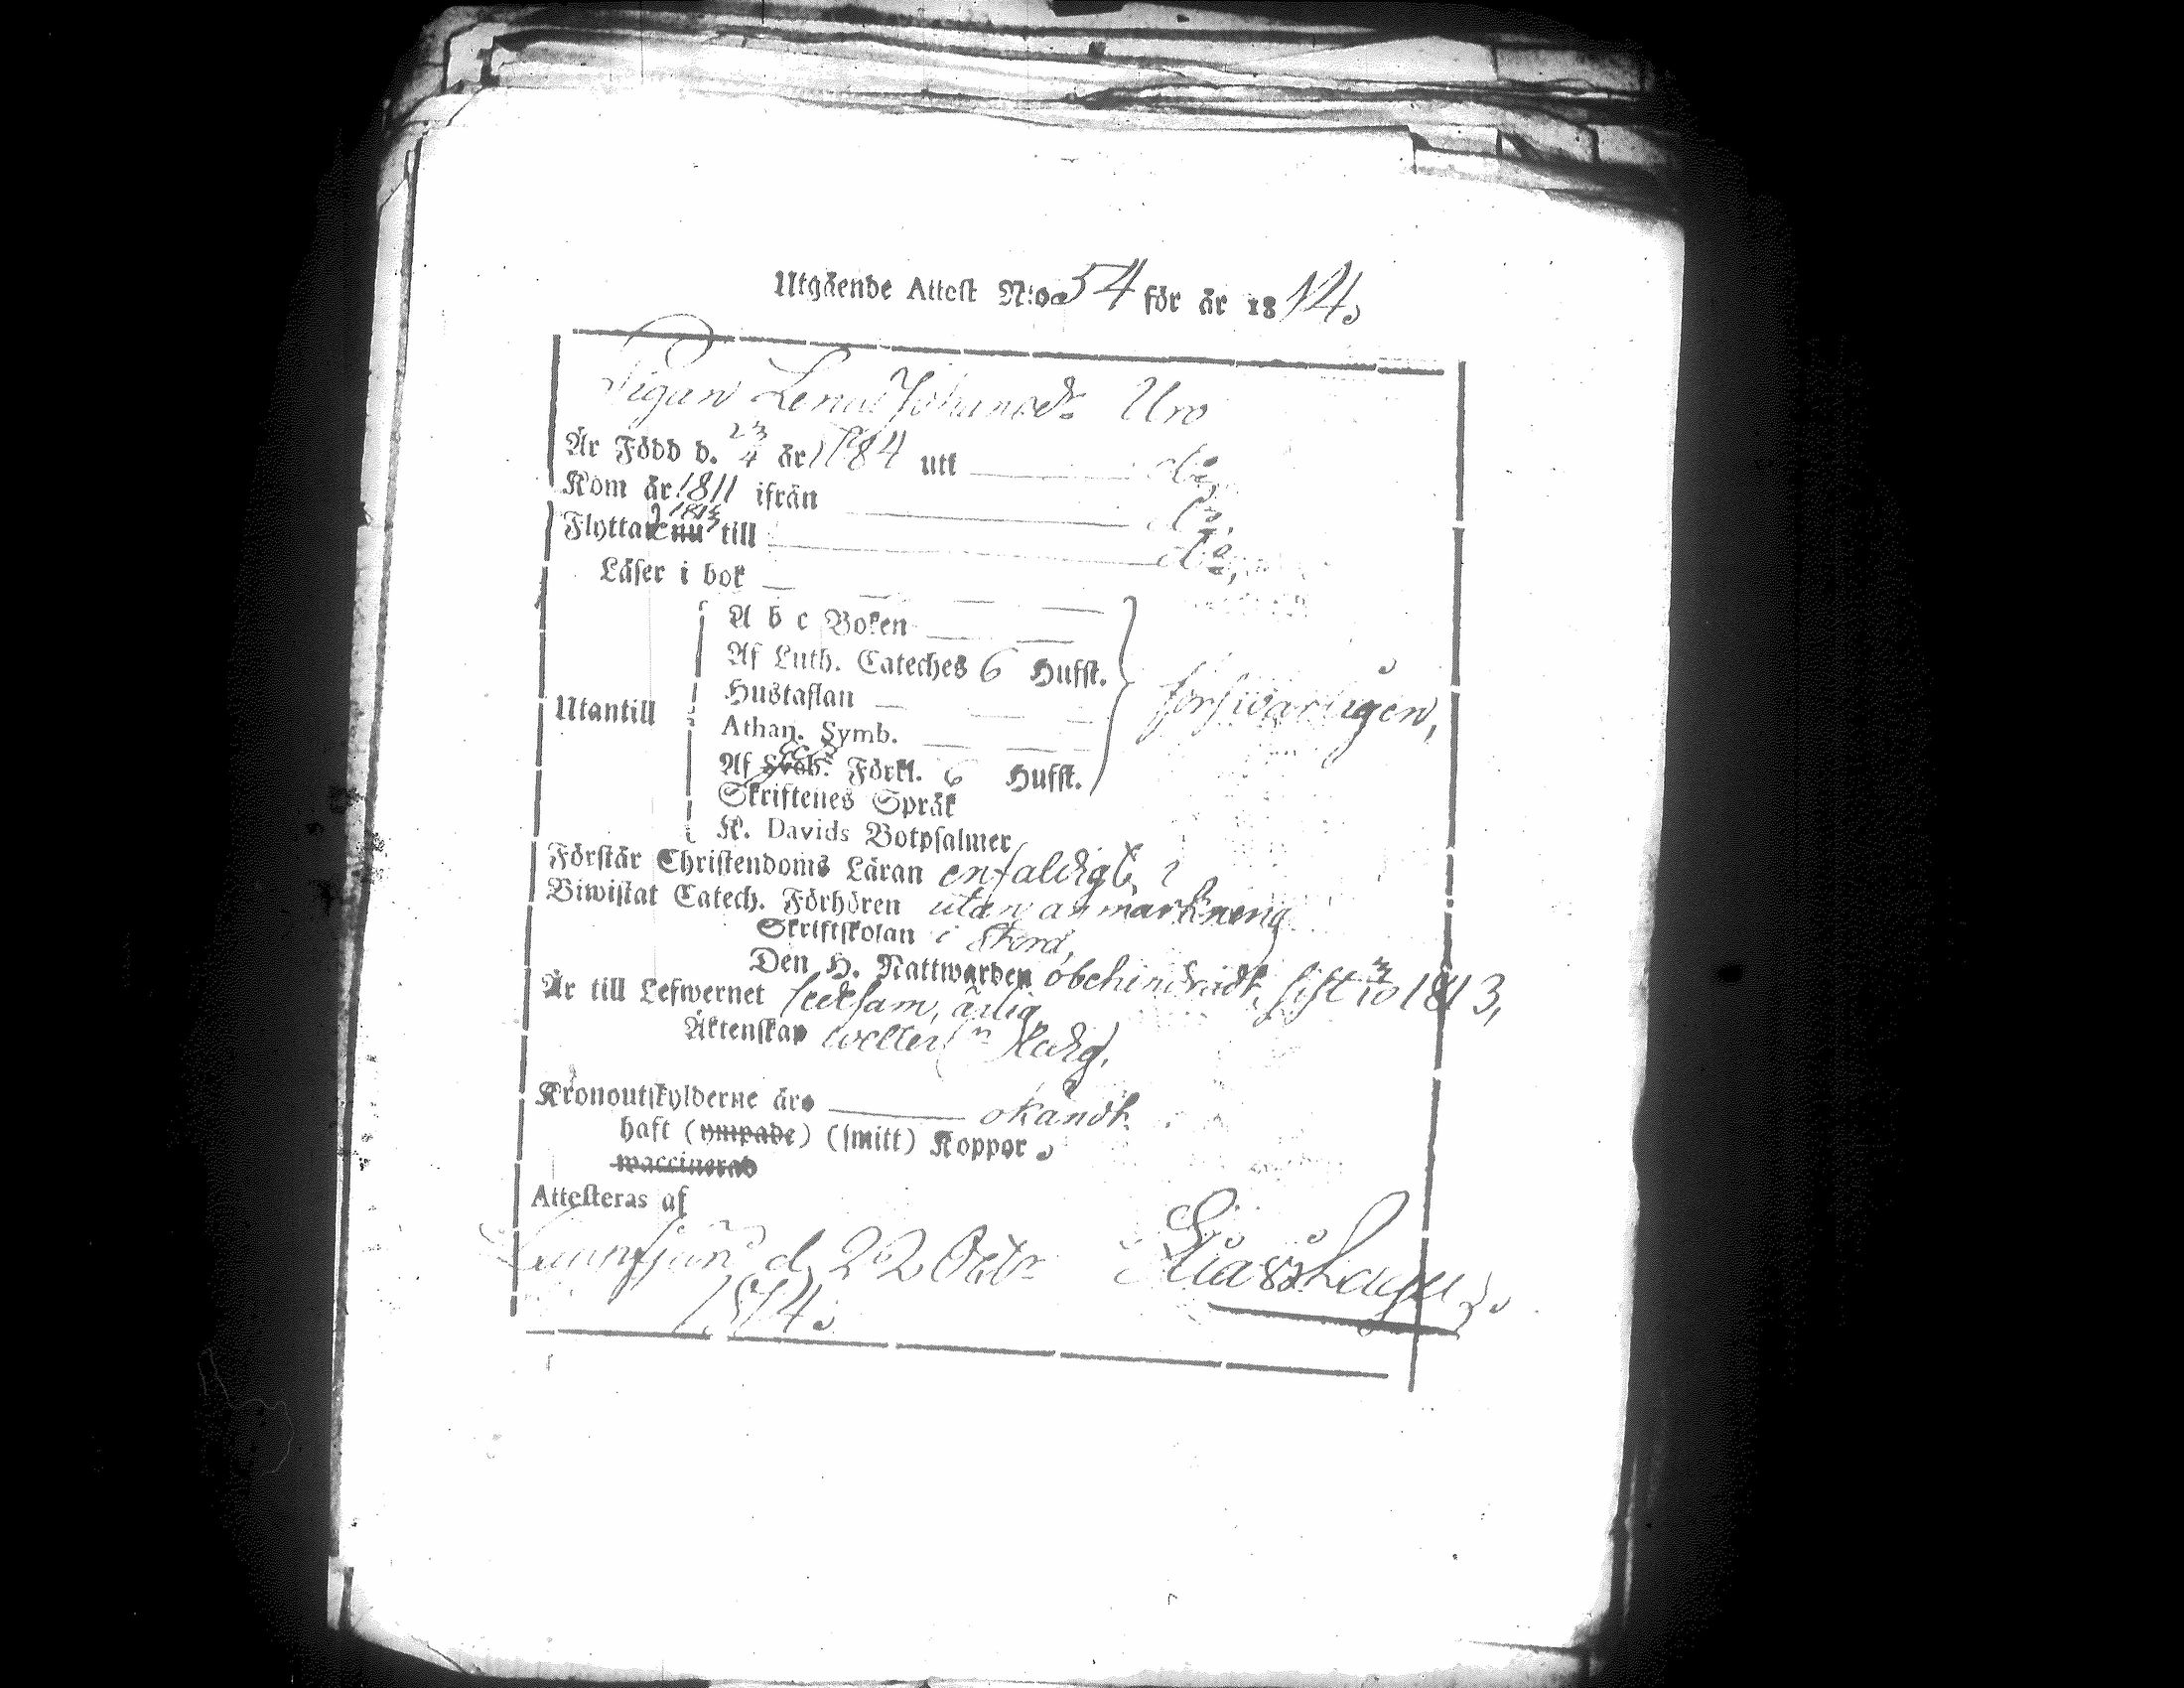 Utgående Attest N:o 54 för år 1814.
Pigan Lena Johansdr Uro
År Född d. 23/4 år 1784 uti — do,
Kom år 1811 ifrån — do,
Flyttade 1813 till — do,
Läser i bok — — — —
A b c Boken — —
Af Luth. Cateches 6 Hufst.
Hustaflan — — —
Utantill
Athan. Symb. — —
försvarligen,
Af Förkl. 6 Hufst.
Skriftenes Språk
K. Davids Botpsalmer
Förstår Christendoms Läran enfaldigt,
Biwistat Catech. Förhören utan anmärkning
Skriftskolan i
Den H. Nattwarden obehindradt, sist 3/10 1813,
Är till Lefwernet sedsam, ärlig
Äktenskap ledig.
Kronoutskylderne äro — okändt.
haft (ympade) (smitt) Koppor.
waccinerad
Attesteras af
d. 22 Octbr
1814.